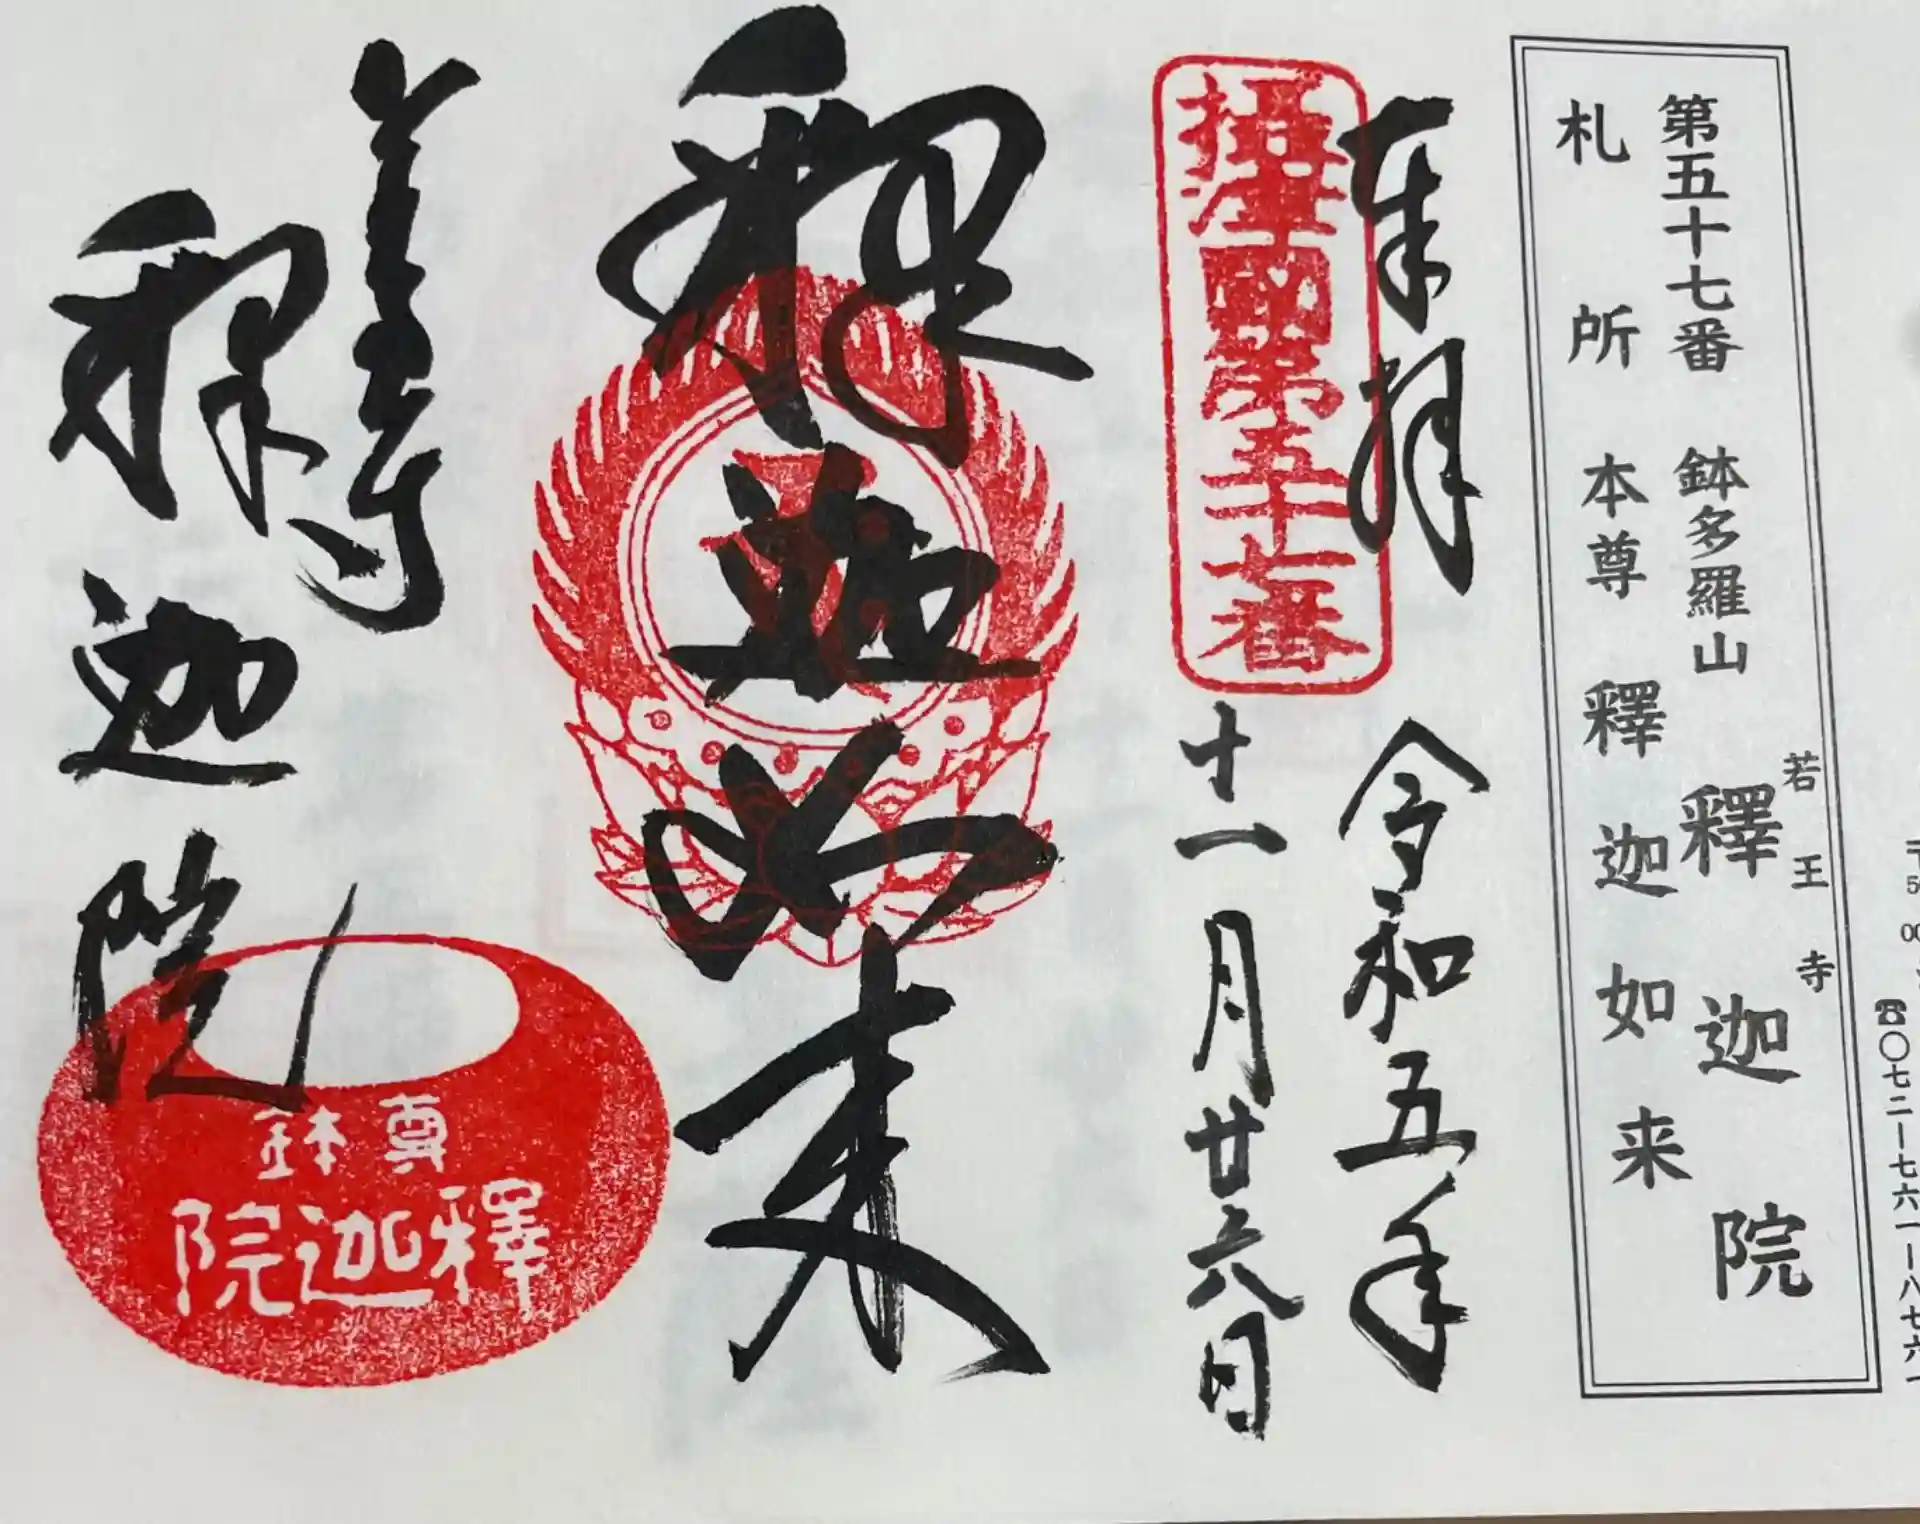 第五十七番　鉢多羅山　釋迦院
若王寺
札所本尊　釋迦如来
☎〇七二ー七六一ー八七六一
奉拝
令和五年
十一月廿六日
摂津国第五十七番
釈迦如来
若王寺
釈迦院
尊鉢
釋迦院